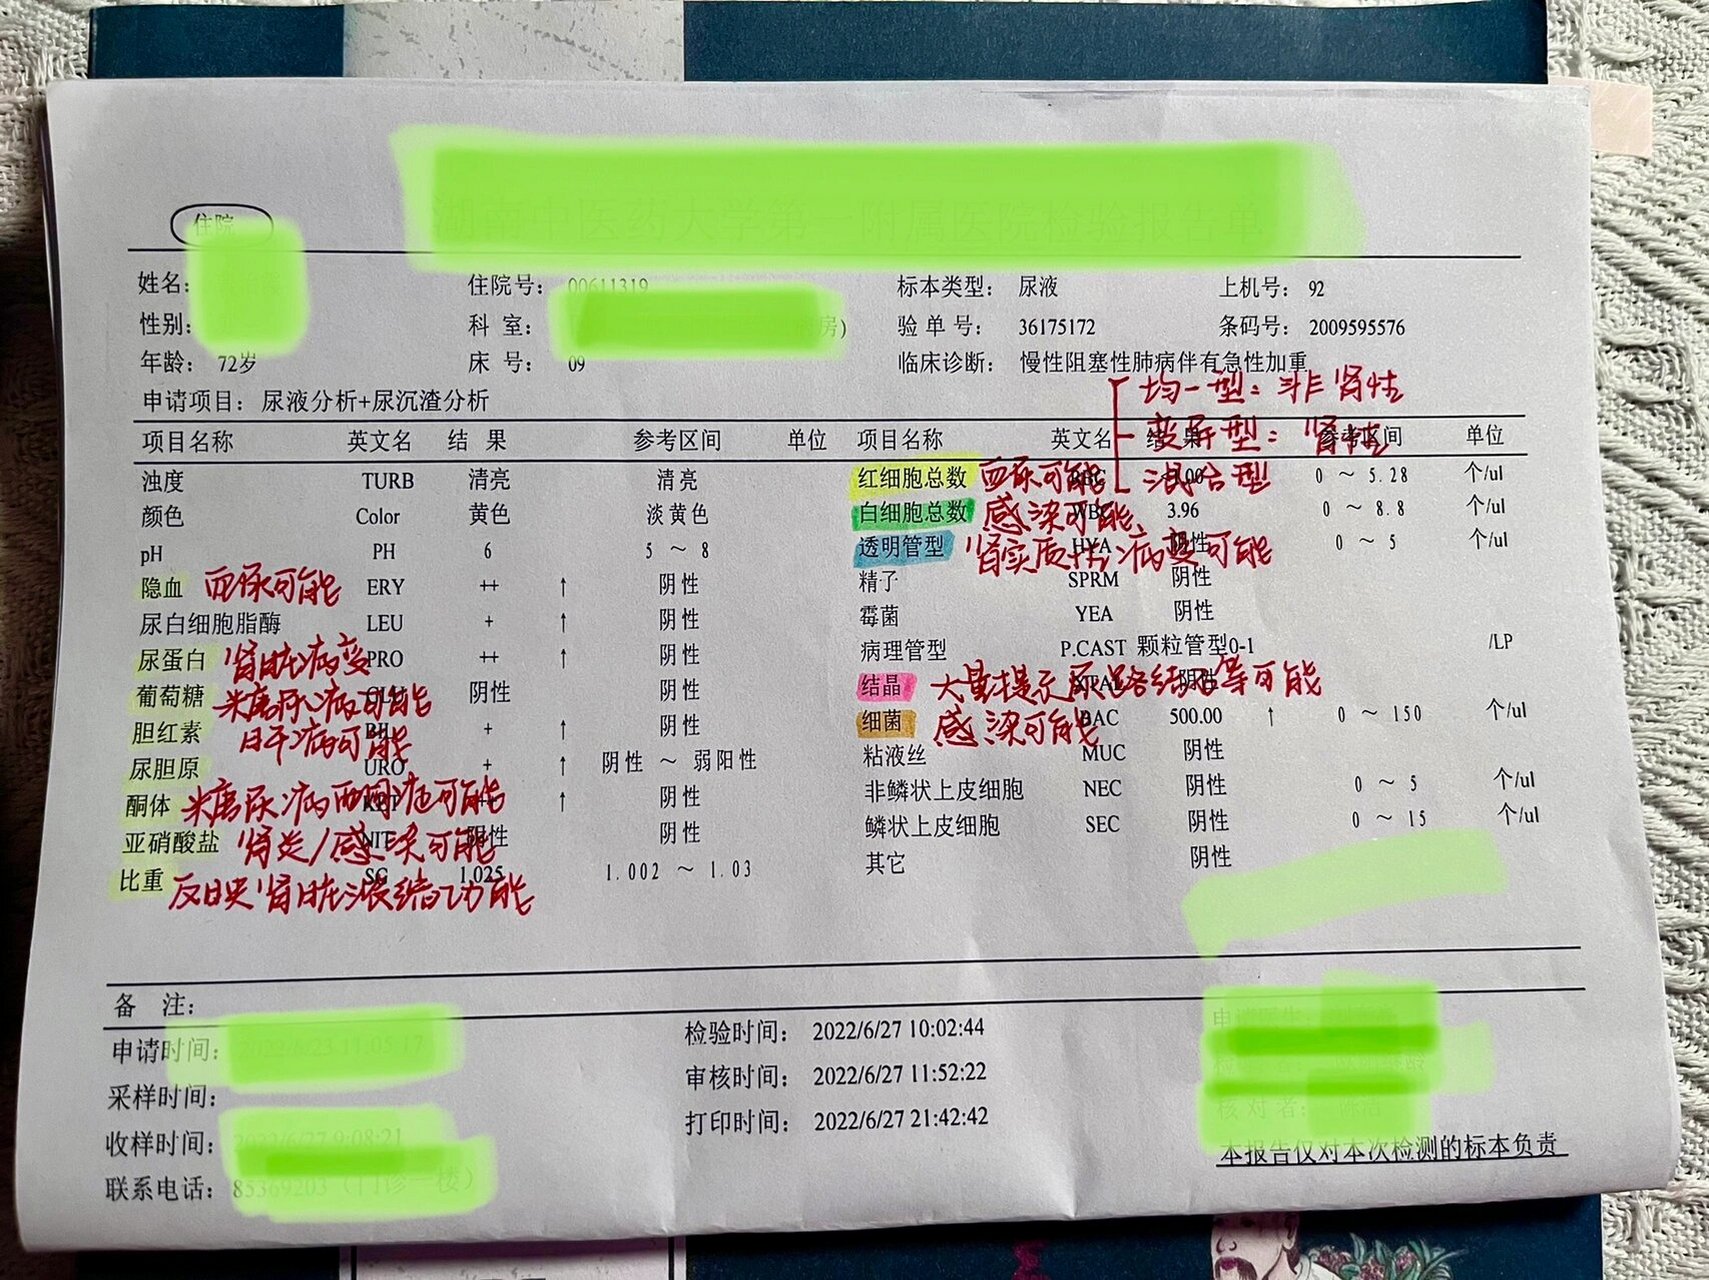 住院
湖南中医药大学第一附属医院检验报告单
姓名：
住院号： 00611319
标本类型： 尿液
上机号： 92
性别：
科 室：
房)
验 单 号： 36175172
条码号： 2009595576
年龄： 72岁
床 号： 09
临床诊断： 慢性阻塞性肺病伴有急性加重
申请项目： 尿液分析+尿沉渣分析
均一型：非肾性
变形型：肾性
混合型
项目名称 英文名 结 果 参考区间 单位
浊度 TURB 清亮 清亮
颜色 Color 黄色 淡黄色
pH PH 6 5 ～ 8
隐血 血尿可能 ERY ++ ↑ 阴性
尿白细胞脂酶 LEU + ↑ 阴性
尿蛋白 肾脏病变 PRO ++ ↑ 阴性
葡萄糖 糖尿病可能 阴性 阴性
胆红素 肝病可能 BIL + ↑ 阴性
尿胆原 URO + ↑ 阴性 ～ 弱阳性
酮体 糖尿病酮症可能 KET ↑ 阴性
亚硝酸盐 肾炎/感染可能 NIT 阴性 阴性
比重 反映肾脏浓缩功能 SG 1.025 1.002 ～ 1.03
项目名称 英文名 结 果 参考区间 单位
红细胞总数 血尿可能 0 ～ 5.28 个/ul
白细胞总数 感染可能、 WBC 3.96 0 ～ 8.8 个/ul
透明管型 肾实质性病变可能 HYA 阴性 0 ～ 5 个/ul
精子 SPRM 阴性
霉菌 YEA 阴性
病理管型 P.CAST 颗粒管型0-1 /LP
结晶 大量提示尿路结石等可能 XTAL 阴性
细菌 感染可能 BAC 500.00 ↑ 0 ～ 150 个/ul
粘液丝 MUC 阴性
非鳞状上皮细胞 NEC 阴性 0 ～ 5 个/ul
鳞状上皮细胞 SEC 阴性 0 ～ 15 个/ul
其它 阴性
备 注：
申请时间：
检验时间： 2022/6/27 10:02:44
采样时间：
审核时间： 2022/6/27 11:52:22
收样时间： 2022/6/27 9:08:21
打印时间： 2022/6/27 21:42:42
核对者：
联系电话： 85369203（门诊一楼）
本报告仅对本次检测的标本负责